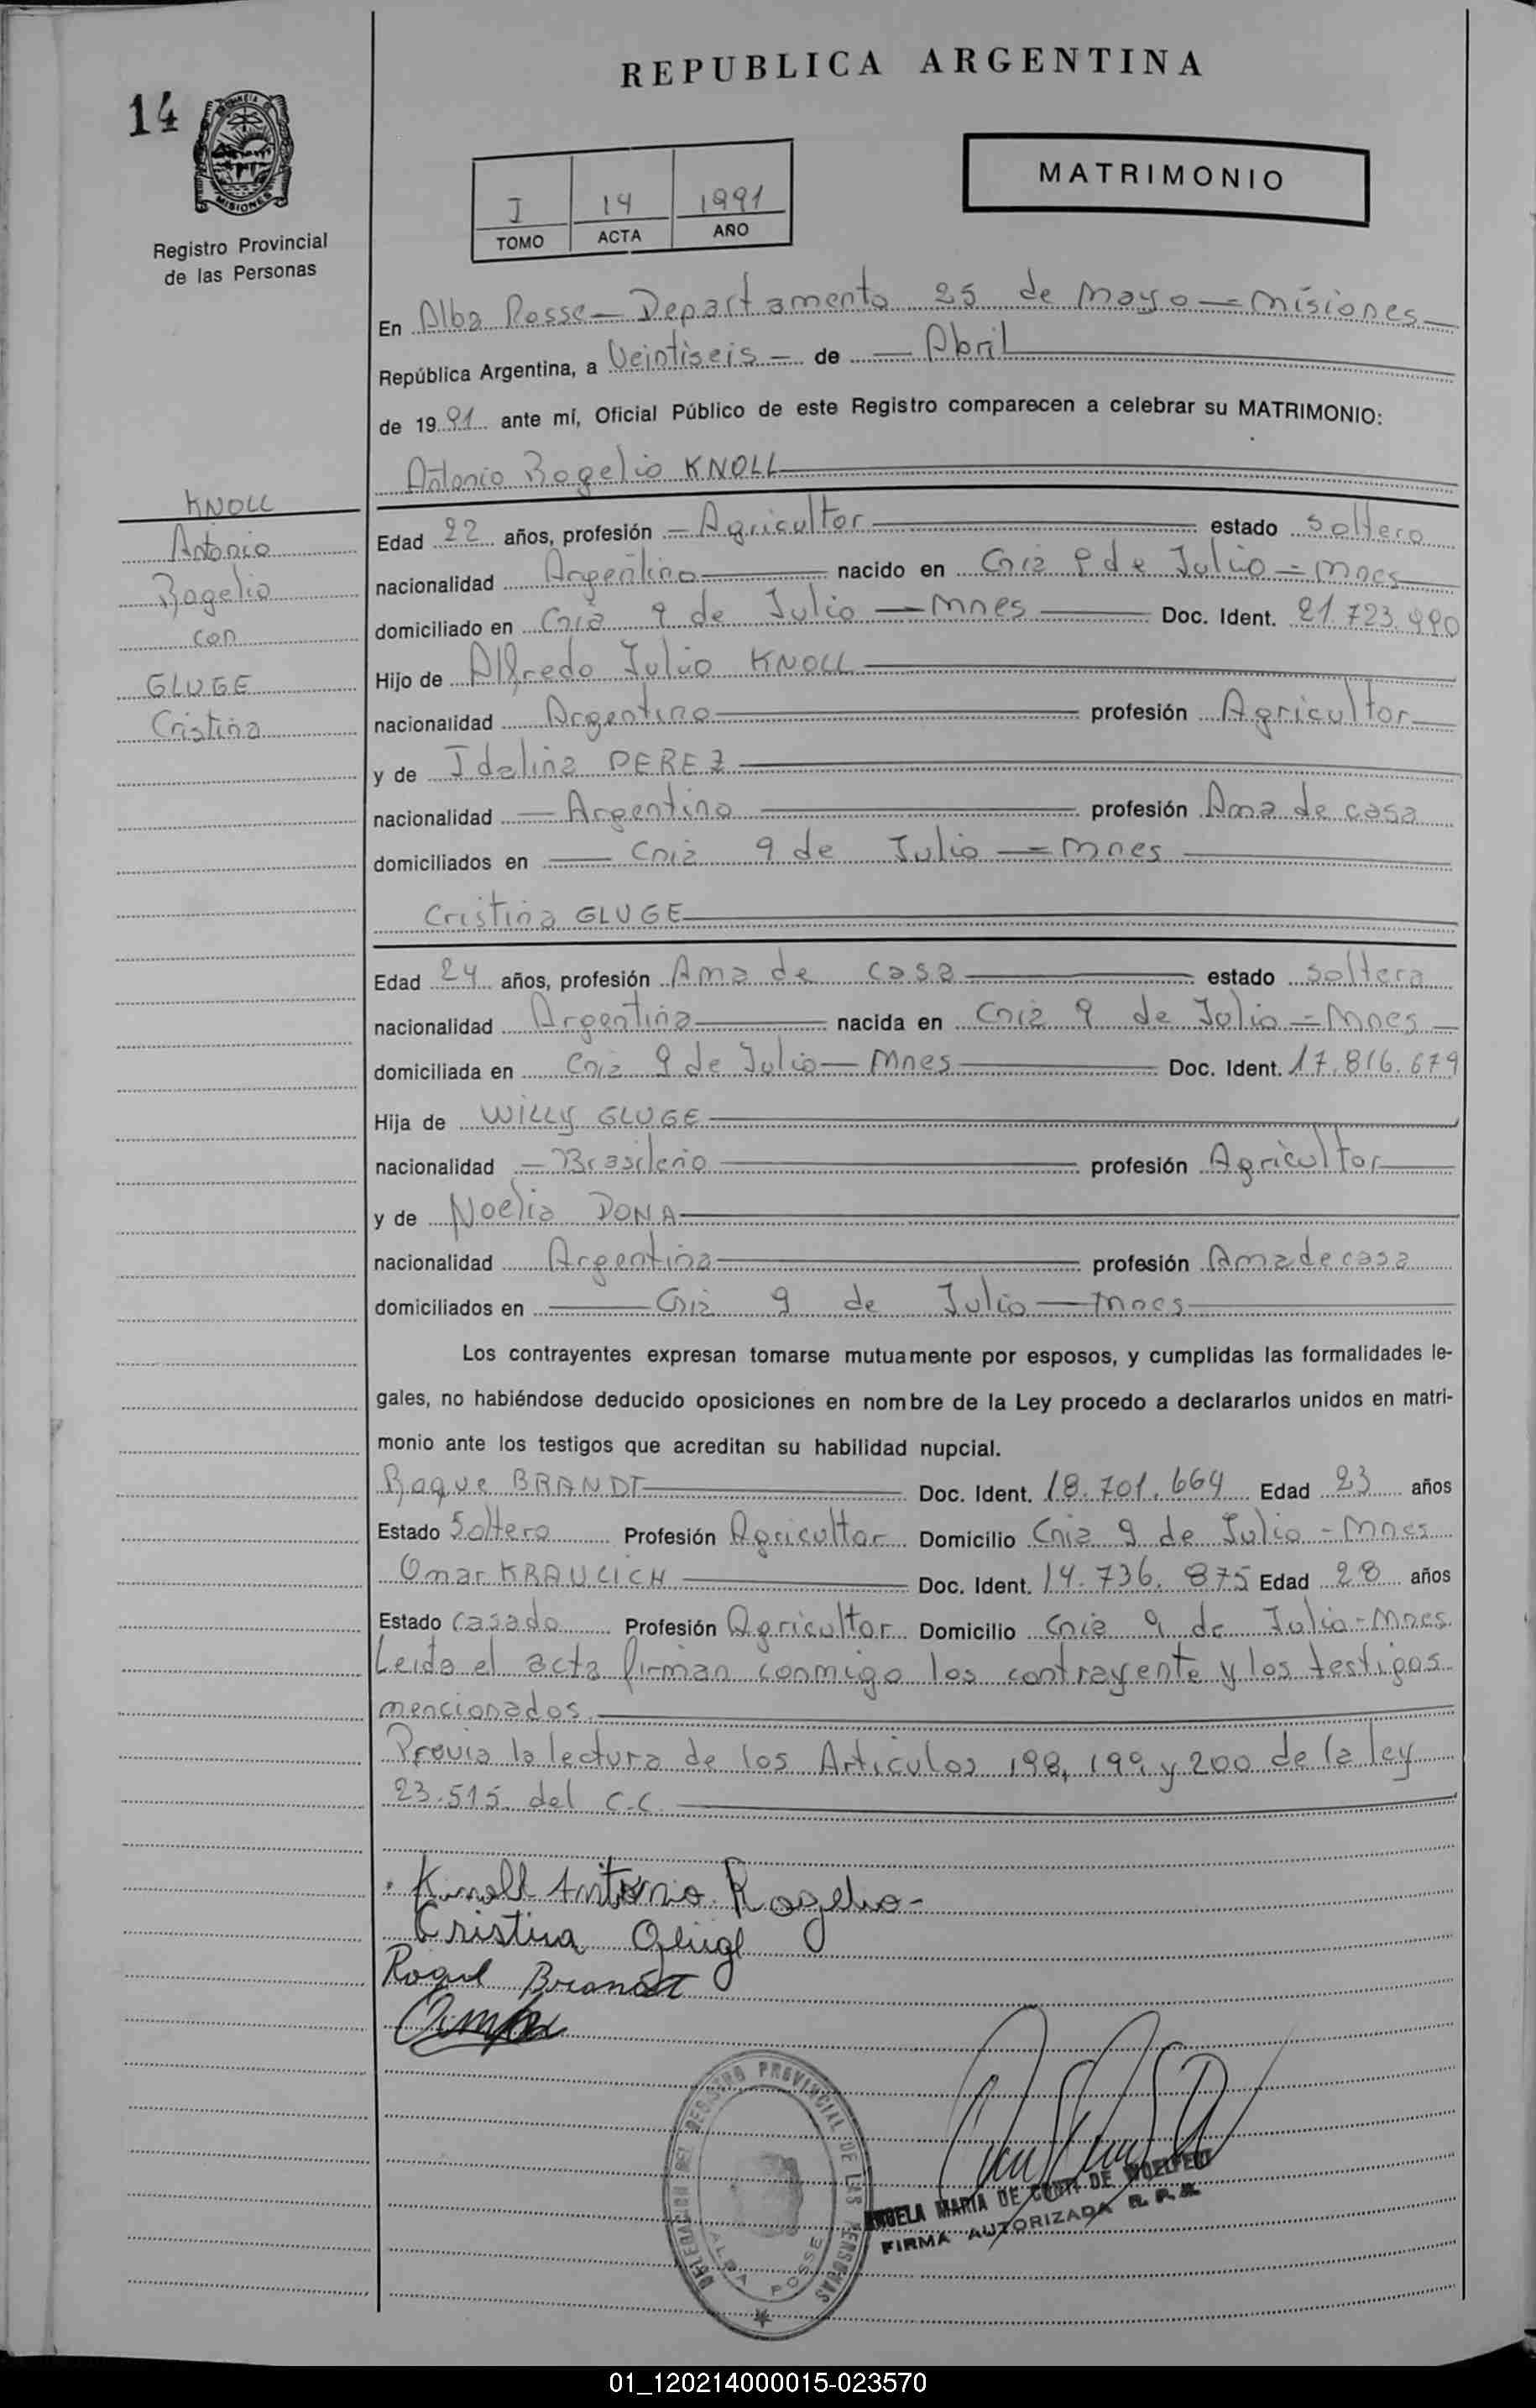 REPUBLICA ARGENTINA
14
PROVINCIA DE
MISIONES
Registro Provincial
de las Personas
I 14 1991
TOMO ACTA AÑO
MATRIMONIO
En Alba Posse - Departamento 25 de Mayo = Misiones
República Argentina, a Veintiseis - de - Abril
de 1991 ante mí, Oficial Público de este Registro comparecen a celebrar su MATRIMONIO:
Antonio Rogelio KNOLL
KNOLL
Antonio
Rogelio
con
GLUGE
Cristina
Edad 22 años, profesión - Agricultor estado soltero
nacionalidad Argentino nacido en Cnia 9 de Julio = Mnes
domiciliado en Cnia 9 de Julio - Mnes Doc. Ident. 21.723.990
Hijo de Alfredo Julio KNOLL
nacionalidad Argentino profesión Agricultor
y de Idalina PEREZ
nacionalidad - Argentina profesión Ama de casa
domiciliados en - Cnia 9 de Julio = Mnes
Cristina GLUGE
Edad 24 años, profesión Ama de casa estado soltera
nacionalidad Argentina nacida en Cnia 9 de Julio = Mnes
domiciliada en Cnia 9 de Julio - Mnes Doc. Ident. 17.816.679
Hija de WILLY GLUGE
nacionalidad - Brasileño profesión Agricultor
y de Noelia DONA
nacionalidad Argentina profesión Ama de casa
domiciliados en - Cnia 9 de Julio - Mnes
Los contrayentes expresan tomarse mutuamente por esposos, y cumplidas las formalidades le-
gales, no habiéndose deducido oposiciones en nombre de la Ley procedo a declararlos unidos en matri-
monio ante los testigos que acreditan su habilidad nupcial.
Roque BRANDT Doc. Ident. 18.701.664 Edad 23 años
Estado Soltero Profesión Agricultor Domicilio Cnia 9 de Julio - Mnes
Omar KRAULICH Doc. Ident. 14.736.875 Edad 28 años
Estado casado Profesión Agricultor Domicilio Cnia 9 de Julio - Mnes
Leida el acta firman conmigo los contrayente y los testigos
mencionados.
Previa la lectura de los Articulos 198, 199 y 200 de la ley
23.515 del C.C.
Knoll Antonio Rogelio
Cristina Gluge
Roque Brandt
DELEGACION DEL REGISTRO PROVINCIAL DE LAS PERSONAS
ALBA POSSE
ANGELA MARIA DE CONTI DE WOELFERT
FIRMA AUTORIZADA R. P. P.
01_120214000015-023570